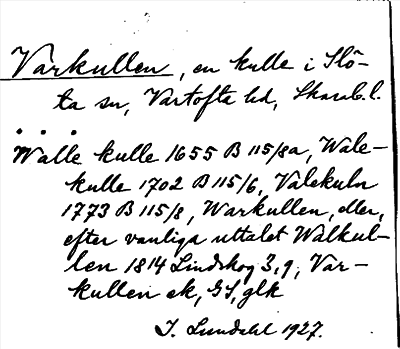 Varkullen, en kulle i Slö-
ta sn, Vartofta hd, Skarab. l.
Walle kulle 1655 B 115/8a, Wale-
kulle 1702 B 115/6, Valekuln
1773 B 115/8, Warkullen, eller,
efter vanliga uttalet Walkul-
len 1814 Lindskog 3,9, Var-
kullen ek, GS, glk
I. Lundahl 1927.